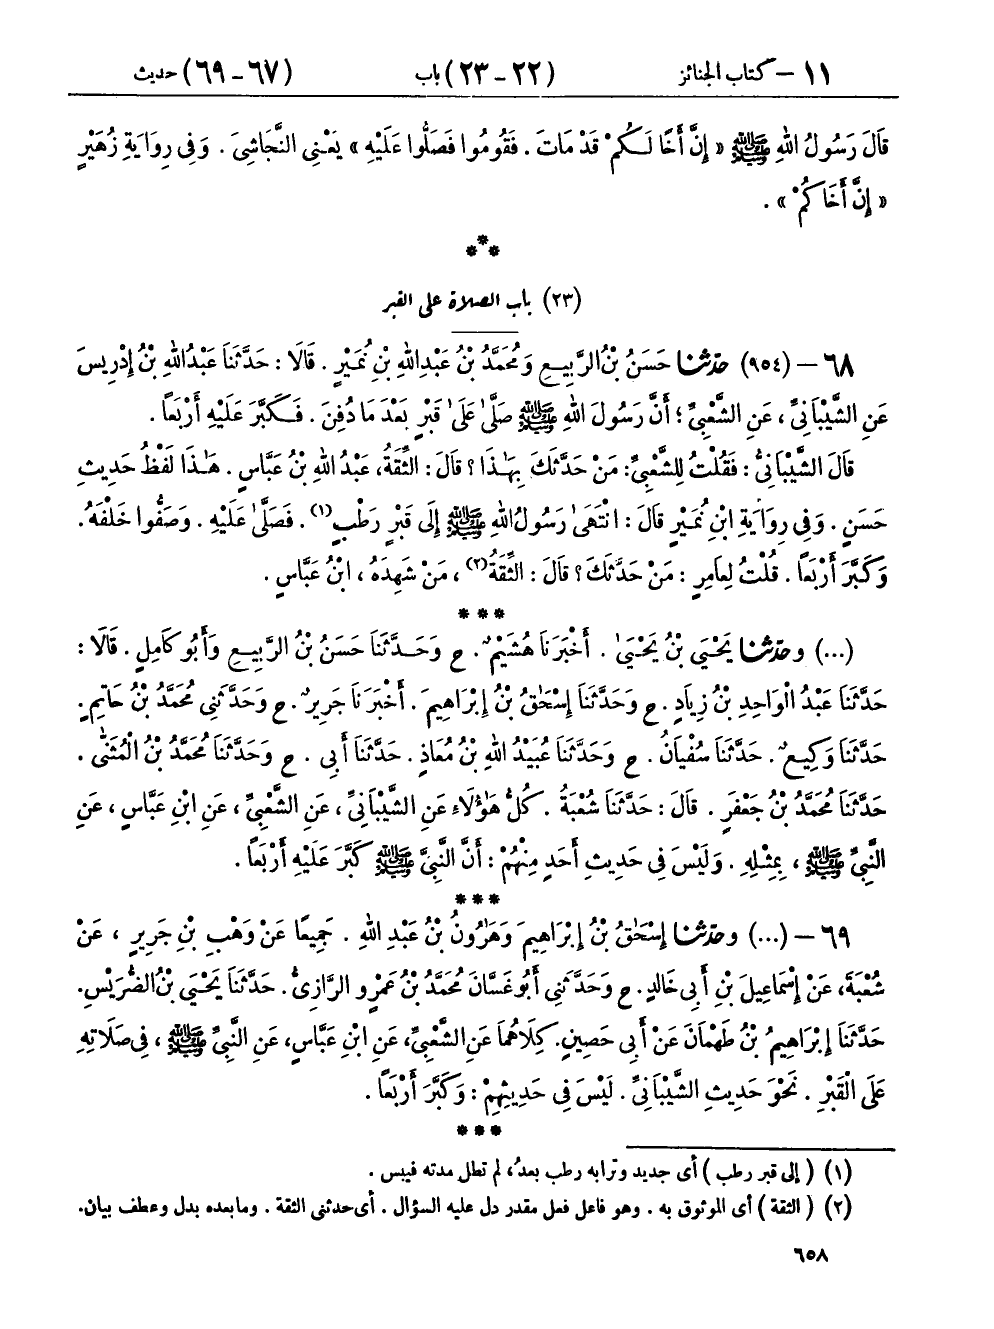 ١١ – كتاب الجنائز (٢٢ - ٢٣) باب (٦٧ - ٦٩) حديث
قَالَ رَسُولُ اللهِ ﷺ « إِنَّ أَخًا لَكُمْ قَدْ مَاتَ . فَقُومُوا فَصَلُّوا عَلَيْهِ » يَعْنِي النَّجَاشِيَ . وَفِي رِوَايَةِ زُهَيْرٍ
« إِنَّ أَخَاكُمْ » .
***
(٢٣) باب الصلاة على القبر
٦٨ – (٩٥٤) حدّثنا حَسَنُ بْنُ الرَّبِيعِ وَمُحَمَّدُ بْنُ عَبْدِاللهِ بْنِ نُمَيْرٍ . قَالَا : حَدَّثَنَا عَبْدُاللهِ بْنُ إِدْرِيسَ
عَنِ الشَّيْبَانِيِّ ، عَنِ الشَّعْبِيِّ ؛ أَنَّ رَسُولَ اللهِ ﷺ صَلَّىٰ عَلَىٰ قَبْرٍ بَعْدَ مَا دُفِنَ . فَكَبَّرَ عَلَيْهِ أَرْبَعًا .
قَالَ الشَّيْبَانِيُّ : فَقُلْتُ لِلشَّعْبِيِّ : مَنْ حَدَّثَكَ بِهَٰذَا ؟ قَالَ : الثِّقَةُ، عَبْدُ اللهِ بْنُ عَبَّاسٍ . هَٰذَا لَفْظُ حَدِيثِ
حَسَنٍ . وَفِي رِوَايَةِ ابْنِ نُمَيْرٍ قَالَ : انْتَهَىٰ رَسُولُ اللهِ ﷺ إِلَى قَبْرٍ رَطْبٍ(١) . فَصَلَّىٰ عَلَيْهِ . وَصَفُّوا خَلْفَهُ .
وَكَبَّرَ أَرْبَعًا . قُلْتُ لِعَامِرٍ : مَنْ حَدَّثَكَ ؟ قَالَ : الثِّقَةُ(٢) ، مَنْ شَهِدَهُ ، ابْنُ عَبَّاسٍ .
***
(...) وحدّثنا يَحْيَى بْنُ يَحْيَىٰ . أَخْبَرَنَا هُشَيْمٌ . ح وَحَدَّثَنَا حَسَنُ بْنُ الرَّبِيعِ وَأَبُو كَامِلٍ . قَالَا :
حَدَّثَنَا عَبْدُ الْوَاحِدِ بْنُ زِيَادٍ . ح وَحَدَّثَنَا إِسْحَٰقُ بْنُ إِبْرَاهِيمَ . أَخْبَرَنَا جَرِيرٌ . ح وَحَدَّثَنِي مُحَمَّدُ بْنُ حَاتِمٍ .
حَدَّثَنَا وَكِيعٌ . حَدَّثَنَا سُفْيَانُ . ح وَحَدَّثَنَا عُبَيْدُ اللهِ بْنُ مُعَاذٍ . حَدَّثَنَا أَبِي . ح وَحَدَّثَنَا مُحَمَّدُ بْنُ الْمُثَنَّىٰ .
حَدَّثَنَا مُحَمَّدُ بْنُ جَعْفَرٍ . قَالَ : حَدَّثَنَا شُعْبَةُ . كُلُّ هَٰؤُلَاءِ عَنِ الشَّيْبَانِيِّ ، عَنِ الشَّعْبِيِّ ، عَنِ ابْنِ عَبَّاسٍ ، عَنِ
النَّبِيِّ ﷺ ، بِمِثْلِهِ . وَلَيْسَ فِي حَدِيثِ أَحَدٍ مِنْهُمْ : أَنَّ النَّبِيَّ ﷺ كَبَّرَ عَلَيْهِ أَرْبَعًا .
***
٦٩ – (...) وحدّثنا إِسْحَٰقُ بْنُ إِبْرَاهِيمَ وَهَٰرُونُ بْنُ عَبْدِ اللهِ . جَمِيعًا عَنْ وَهْبِ بْنِ جَرِيرٍ ، عَنْ
شُعْبَةَ، عَنْ إِسْمَاعِيلَ بْنِ أَبِي خَالِدٍ . ح وَحَدَّثَنِي أَبُو غَسَّانَ مُحَمَّدُ بْنُ عَمْرٍو الرَّازِيُّ . حَدَّثَنَا يَحْيَىٰ بْنُ الضُّرَيْسِ .
حَدَّثَنَا إِبْرَاهِيمُ بْنُ طَهْمَانَ عَنْ أَبِي حَصِينٍ . كِلَاهُمَا عَنِ الشَّعْبِيِّ، عَنِ ابْنِ عَبَّاسٍ، عَنِ النَّبِيِّ ﷺ ، فِي صَلَاتِهِ
عَلَى الْقَبْرِ . نَحْوَ حَدِيثِ الشَّيْبَانِيِّ . لَيْسَ فِي حَدِيثِهِمْ : وَكَبَّرَ أَرْبَعًا .
***
(١) ( إلى قبر رطب ) أى جديد وترابه رطب بعدُ، لم تطل مدته فيبس .
(٢) ( الثقة ) أى الموثوق به . وهو فاعل فعل مقدر دل عليه السؤال . أى حدثنى الثقة . وما بعده بدل وعطف بيان .
٦٥٨